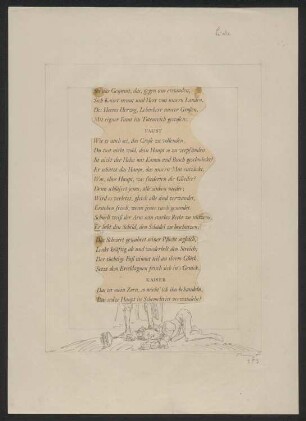 das Gespenst, das, gegen uns erstanden,
Sich Kaiser nennt und Herr von unsern Landen,
Des Heeres Herzog, Lehnsherr unsrer Großen,
Mit eigner Faust ins Totenreich gestoßen.
FAUST
Wie es auch sei, das Große zu vollenden,
Du tust nicht wohl, dein Haupt so zu verpfänden.
Ist nicht der Helm mit Kamm und Busch geschmückt?
Er schützt das Haupt, das unsern Mut entzückt.
Was, ohne Haupt, was förderten die Glieder?
Denn schläfert jenes, alle sinken nieder;
Wird es verletzt, gleich alle sind verwundet,
Erstehen frisch, wenn jenes rasch gesundet.
Schnell weiß der Arm sein starkes Recht zu nützen,
Er hebt den Schild, den Schädel zu beschützen;
Das Schwert gewahret seiner Pflicht sogleich,
Lenkt kräftig ab und wiederholt den Streich;
Der tüchtige Fuß nimmt teil an ihrem Glück,
Setzt dem Erschlagnen frisch sich ins Genick.
KAISER
Das ist mein Zorn, so möcht' ich ihn behandeln,
Das stolze Haupt in Schemeltritt verwandeln!